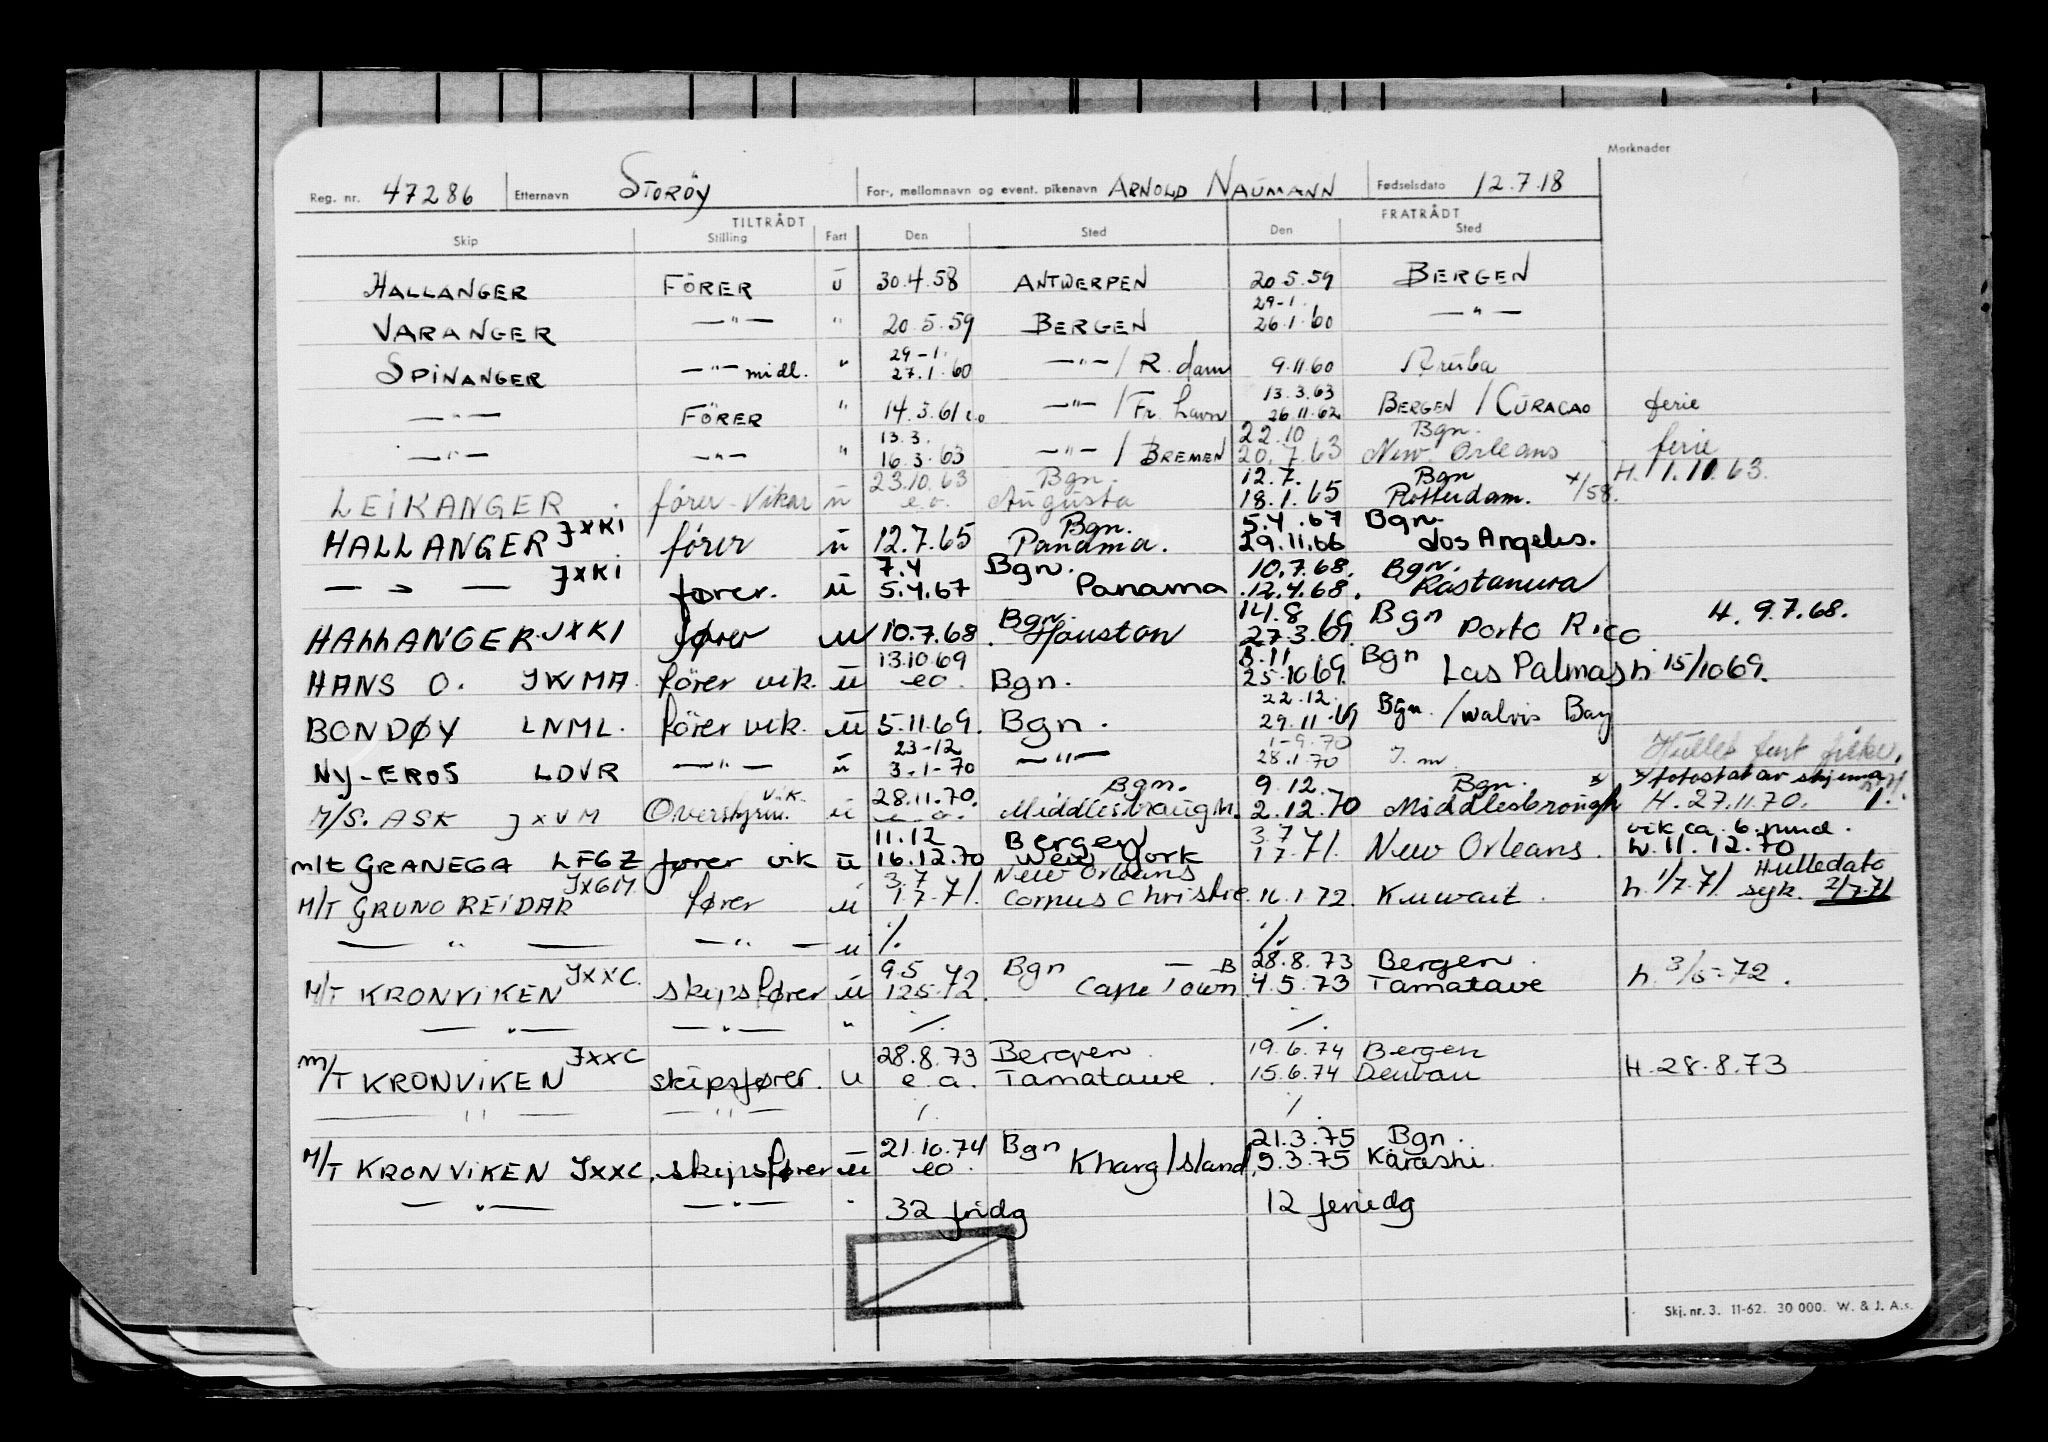 Morknader
Reg. nr. 47286 Etternavn STORÖY For-, mellomnavn og event. pikenavn ARNOLD NAUMANN Fødselsdato 12.7.18
TILTRÅDT FRATRÅDT
Skip Stilling Fart Den Sted Den Sted
HALLANGER FÖRER u 30.4.58 ANTWERPEN 20.5.59 BERGEN
29-1.
VARANGER —"— " 20.5.59 BERGEN 26.1.60 —"—
29-1.
SPINANGER —"— midl. " 27.1.60 —"— / R.dam 9.11.60 Aruba
13.3.63
—"— FÖRER " 14.3.61 —"— / Fr. havn 26.11.62 BERGEN / CURACAO ferie
13.3. 22.10 Bgn.
—"— —"— " 16.3.63 —"— / BREMEN 20.7.63 New Orleans ferie
23.10.63 Bgn. 12.7. Bgn H. 1.10.63.
LEIKANGER förer Vikar u e.o. Augusta 18.1.65 Rotterdam. x/58.
JXKI Bgn. 5.4.67 Bgn.
HALLANGER förer u 12.7.65 Panama. 29.11.66 Los Angeles.
JXKI 7.4 Bgn. 10.7.68. Bgn.
— " — fører. u 5.4.67 Panama 12.4.68. Rastanura
Bgn. 14.8 Bgn H. 9.7.68.
HALLANGER JXKI fører u 10.7.68. Houston 27.3.69 Porto Rico
13.10.69 8.11 Bgn
HANS O. JKMA förer vik. u eo. Bgn. 25.10.69. Las Palmas h 15/10 69.
22.12.
BONDØY LNML. förer vik. u 5.11.69. Bgn. 29.11.69 Bgn. / Walvis Bay
23-12 1-9.70 Hullet
NY-EROS LDVR —"— u 3-1-70 —"— 28.1.70 x fotostat av skjema
vik. 28.11.70. Bgn. 9.12. Bgn. x
M/S. ASK JXVM Overstyrm. u e.o. Middlesbraugh. 2.12.70 Middlesbrough H. 27.11.70. 1.
11.12 Bergen 3.7 vik ca. 6. mnd.
m/t GRANEGA LFGZ fører vik u 16.12.70 New York 1.7.71. New Orleans. h. 11.12.70
JXGM 3.7 New Orleans Hulledato
M/T GRUNO REIDAR fører u 1.7.71. Corpus Christie. 16.1.72. Kuwait. h. 1/7.71. syk. 2/7.71
— " — —"— u % %
JXXC. 9.5 Bgn — B 28.8.73 Bergen.
M/T KRONVIKEN skipsfører u 12.5.72. Cape Town 4.5.73 Tamatave h. 3/5-72.
— " — —"— " %. %.
JXXC 28.8.73 Bergen. 19.6.74 Bergen
m/T KRONVIKEN skipsfører. u e.a. Tamatave. 15.6.74 H. 28.8.73
— " — —"— /. /.
21.10.74 Bgn 21.3.75 Bgn.
M/T KRONVIKEN JXXC. skipsfører u eo. Kharg Island. 9.3.75 Karashi.
— " — —"— "
32 fridg 12 feriedg
Skj. nr. 3. 11-62. 30 000. W. & J. A.s.